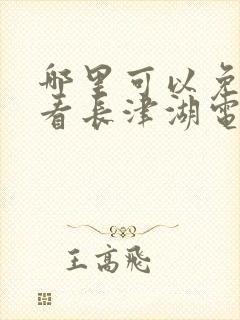 哪里可以免
看長津湖電
王高飛